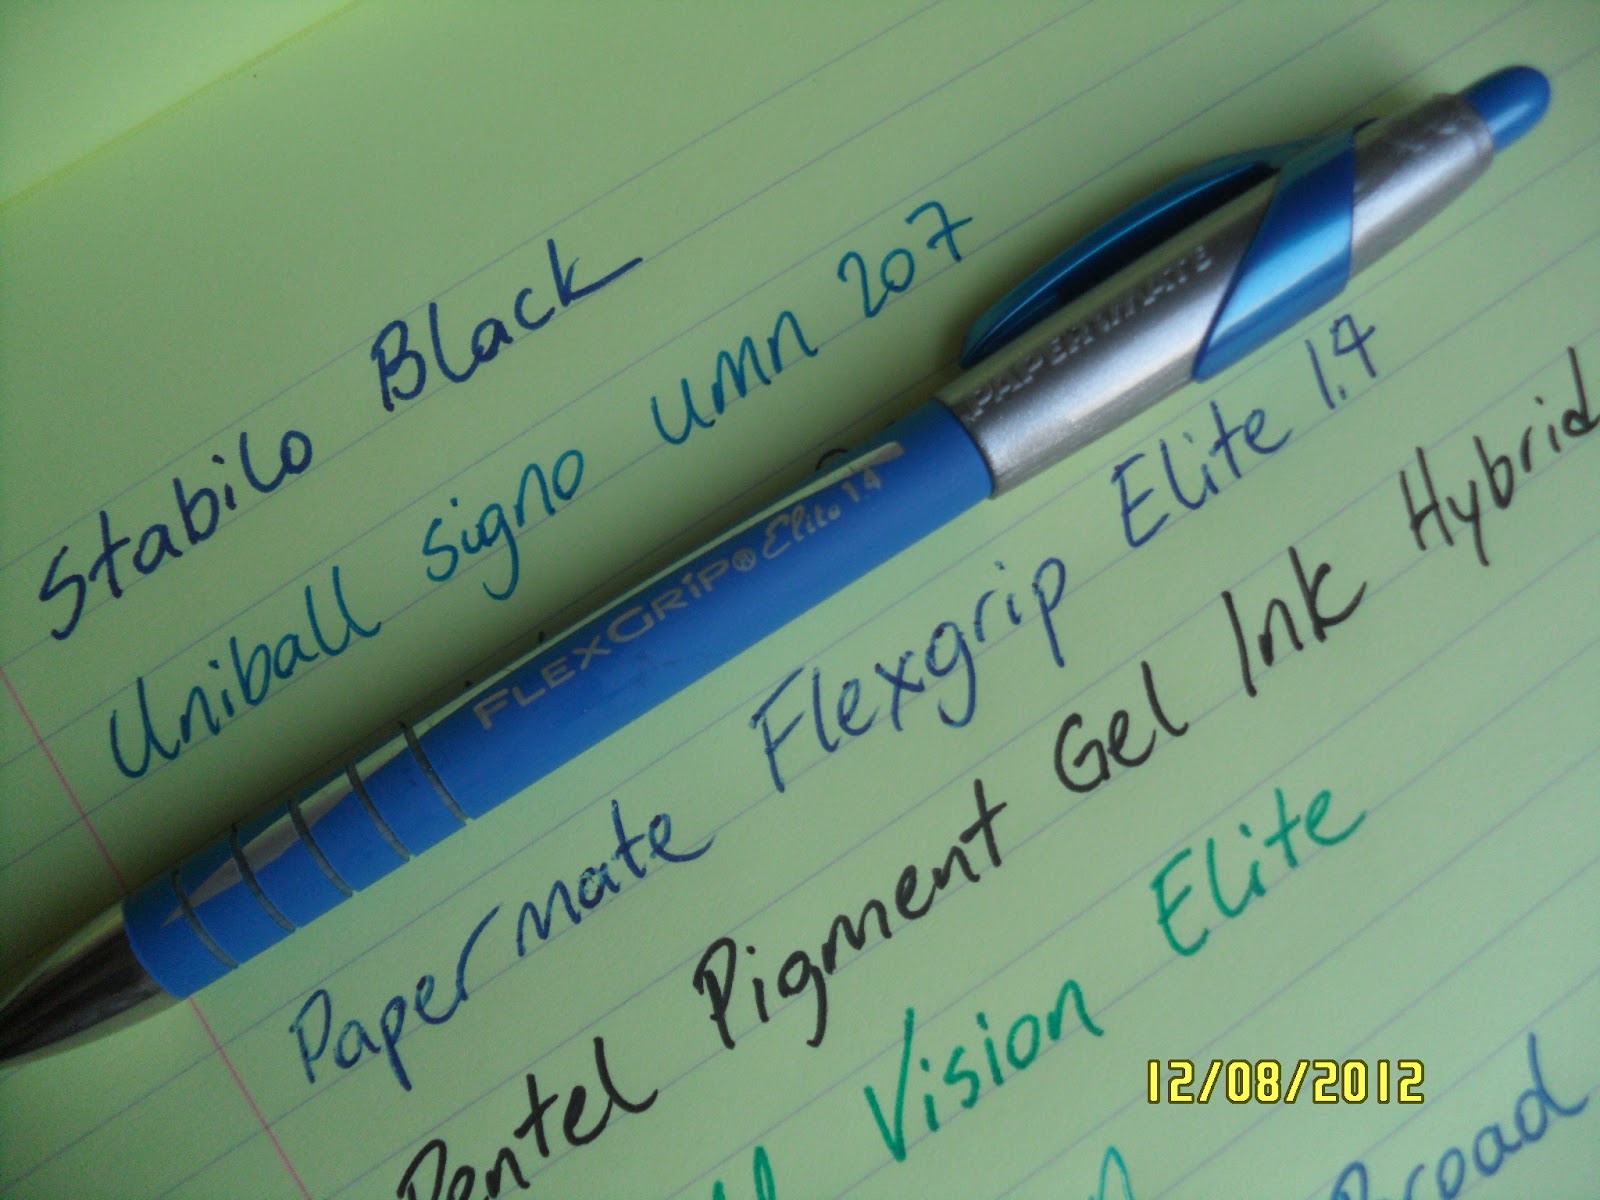 Stabilo Black
Uniball signo umn 207
PAPERMATE
FLEXGRIP® Elite 1.4
Papermate Flexgrip Elite 1.4
Pentel Pigment Gel Ink Hybrid
Vision Elite
12/08/2012
Broad